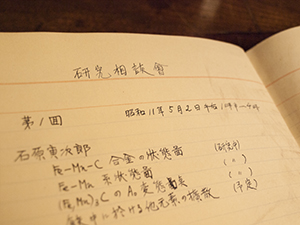 研究相談會
第1回
昭和11年5月2日午后
石原寅次郎
Fe-Mn-C 合金の状態図 (研究中)
Fe-Mn 系状態図 (〃)
(Fe,Mn)3C の A0 変態点 (〃)
鉄中に於ける他元素の擴散 (予定)